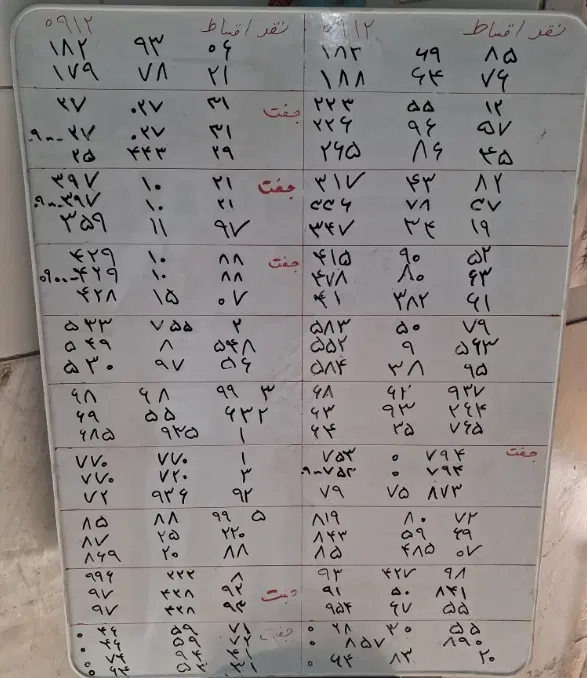 نقد اقساط ۰۹۱۲ نقد اقساط ۰۹۱۲
۱۸۲ ۹۳ ۰۶ ۱۸۳ ۶۹ ۸۵
۱۷۹ ۷۸ ۲۱ ۱۸۸ ۶۴ ۷۶
۲۷ ۰۲۷ ۳۱ جفت ۲۲۳ ۵۵ ۱۲
۰۹۰۰-۲۷ ۰۲۷ ۳۱ ۲۲۶ ۹۶ ۵۷
۲۵ ۴۴۳ ۲۹ ۲۶۵ ۸۶ ۴۵
۳۹۷ ۱۰ ۲۱ جفت ۳۱۷ ۴۳ ۸۲
۰۹۰۰-۳۹۷ ۱۰ ۲۱ ۳۳۶ ۷۸ ۲۷
۳۵۹ ۱۱ ۹۷ ۳۴۷ ۳۴ ۱۹
۴۲۹ ۱۰ ۸۸ جفت ۴۱۵ ۹۰ ۵۲
۰۹۰۰-۴۲۹ ۱۰ ۸۸ ۴۷۸ ۸۰ ۶۳
۴۲۸ ۱۵ ۰۷ ۴۱ ۳۸۲ ۶۱
۵۳۳ ۷۵۵ ۲ ۵۸۳ ۵۰ ۷۹
۵۴۹ ۸ ۵۴۸ ۵۵۲ ۹ ۵۶۳
۵۳۰ ۹۷ ۵۶ ۵۸۴ ۳۸ ۹۵
۶۸ ۶۸ ۹۹ ۳ ۶۸ ۶۲ ۹۳۷
۶۹ ۵۵ ۶۳۲ ۶۳ ۹۳ ۲۶۴
۶۸۵ ۹۳۵ ۱ ۶۴ ۲۵ ۷۶۵
۷۷۰ ۷۷۰ ۱ ۷۵۳ ۰ ۷۹۴ جفت
۷۷۰ ۷۲۰ ۳ ۹۰۰-۷۵۳ ۰ ۷۹۴
۷۲ ۹۳۶ ۹۲ ۷۹ ۷۵ ۸۷۳
۸۵ ۸۸ ۹۹ ۵ ۸۱۹ ۸۰ ۷۲
۸۷ ۲۵ ۲۲۰ ۸۴۳ ۵۹ ۶۹
۸۶۹ ۲۰ ۸۸ ۸۵ ۴۸۵ ۰۷
۹۹۶ ۲۲۲ ۸ ۹۳ ۴۲۷ ۹۸
۹۷ ۴۲۸ ۹۲ جفت ۹۱ ۵۰ ۸۴۱
۹۷ ۴۲۸ ۹۴ ۹۵۴ ۶۷ ۵۵
۰ ۴۶ ۵۹ ۷۱ جفت ۰ ۲۸ ۳۰ ۵۵
۰ ۴۶ ۵۹ ۷۲ ۰ ۸۵۷ ۸۹۰
۰ ۶۴ ۸۳ ۲۰